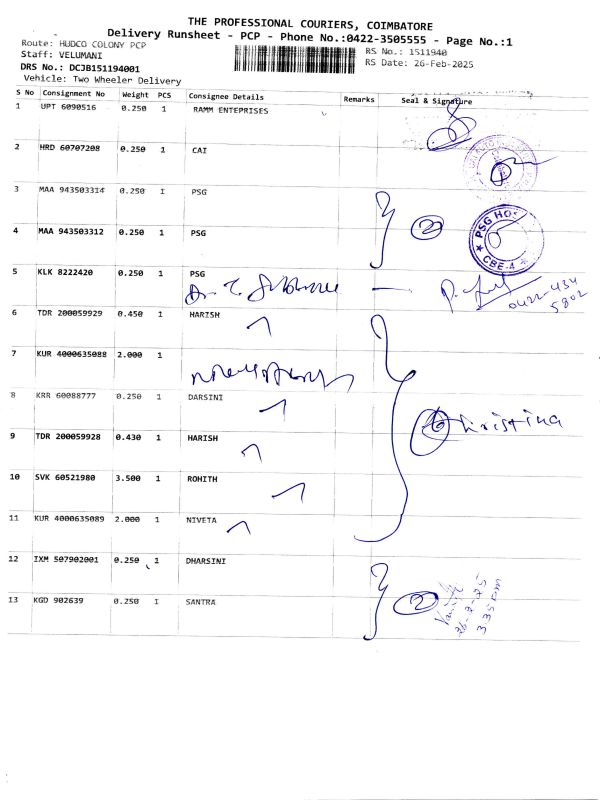 THE PROFESSIONAL COURIERS, COIMBATORE
Delivery Runsheet - PCP - Phone No.:0422-3505555 - Page No.:1
Route: HUDCO COLONY PCP
Staff: VELUMANI
DRS No.: DCJB151194001
Vehicle: Two Wheeler Delivery
RS No.: 1511940
RS Date: 26-Feb-2025
S No Consignment No Weight PCS Consignee Details Remarks Seal & Signature
1 UPT 6090516 0.250 1 RAMM ENTEPRISES
2 HRD 60707208 0.250 1 CAI
3 MAA 943503314 0.250 1 PSG
4 MAA 943503312 0.250 1 PSG
2
PSG HOS
CBE-4
5 KLK 8222420 0.250 1 PSG
Dr.
0422-434
5802
6 TDR 200059929 0.450 1 HARISH
7 KUR 4000635088 2.000 1
8 KRR 60088777 0.250 1 DARSINI
6 Christina
9 TDR 200059928 0.430 1 HARISH
10 SVK 60521980 3.500 1 ROHITH
11 KUR 4000635089 2.000 1 NIVETA
12 IXM 507902001 0.250 1 DHARSINI
13 KGD 902639 0.250 1 SANTRA
2
26-2-25
3.35 pm